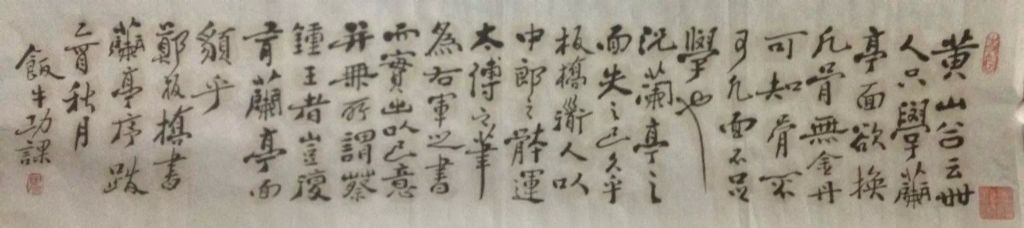 黄山谷云卋
人只學蘭
亭面欲換
凡骨無金丹
可知骨不
可凡面不足
學也
況蘭亭之
面失之已久乎
板橋道人以
中郎之骵運
太傅之筆
為右軍之書
而實出以己意
并無所謂蔡
鍾王者豈復
有蘭亭面
貌乎
鄭板橋書
蘭亭序跋
秋月
飯牛功課